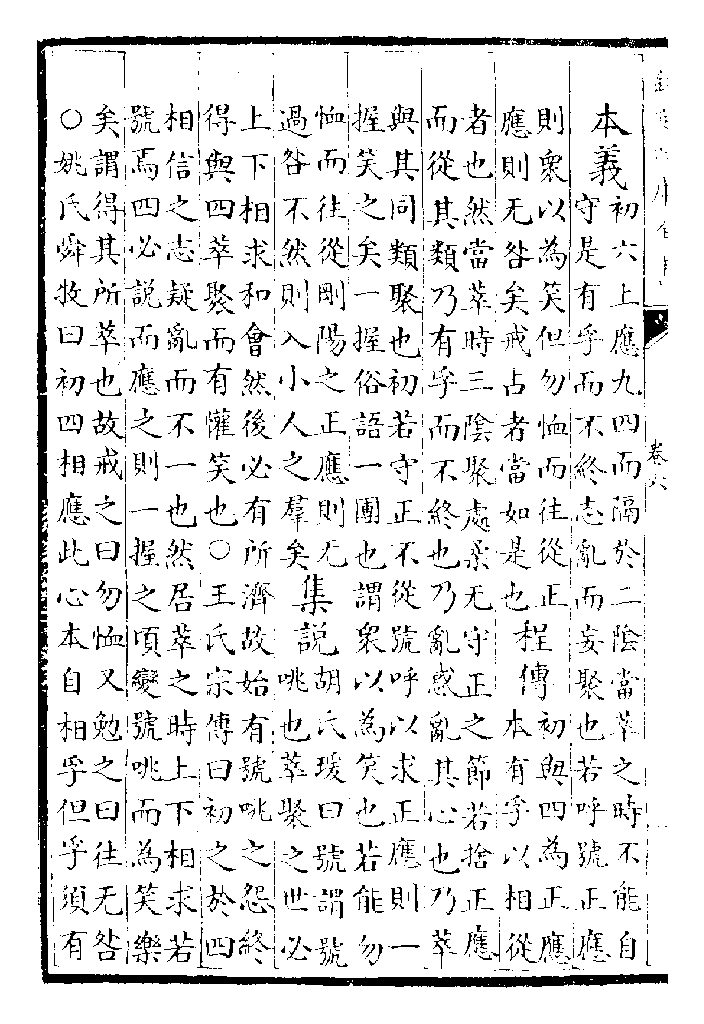 卷六
本義
初六上應九四而隔於二陰當萃之時不能自
守是有孚而不終志亂而妄聚也若呼號正應
則衆以為笑但勿恤而往從正
應則无咎矣戒占者當如是也
程傳
初與四為正應
本有孚以相從
者也然當萃時三陰聚處柔无守正之節若捨正應
而從其類乃有孚而不終也乃亂惑亂其心也乃萃
與其同類聚也初若守正不從號呼以求正應則一
握笑之矣一握俗語一團也謂衆以為笑也若能勿
恤而往從剛陽之正應則无
過咎不然則入小人之羣矣
集說
胡氏瑗曰號謂號
咷也萃聚之世必
上下相求和會然後必有所濟故始有號咷之怨終
得與四萃聚而有懽笑也○王氏宗傳曰初之於四
相信之志疑亂而不一也然居萃之時上下相求若
號焉四必説而應之則一握之頃變號咷而為笑樂
矣謂得其所萃也故戒之曰勿恤又勉之曰往无咎
○姚氏舜牧曰初四相應此心本自相孚但孚須有